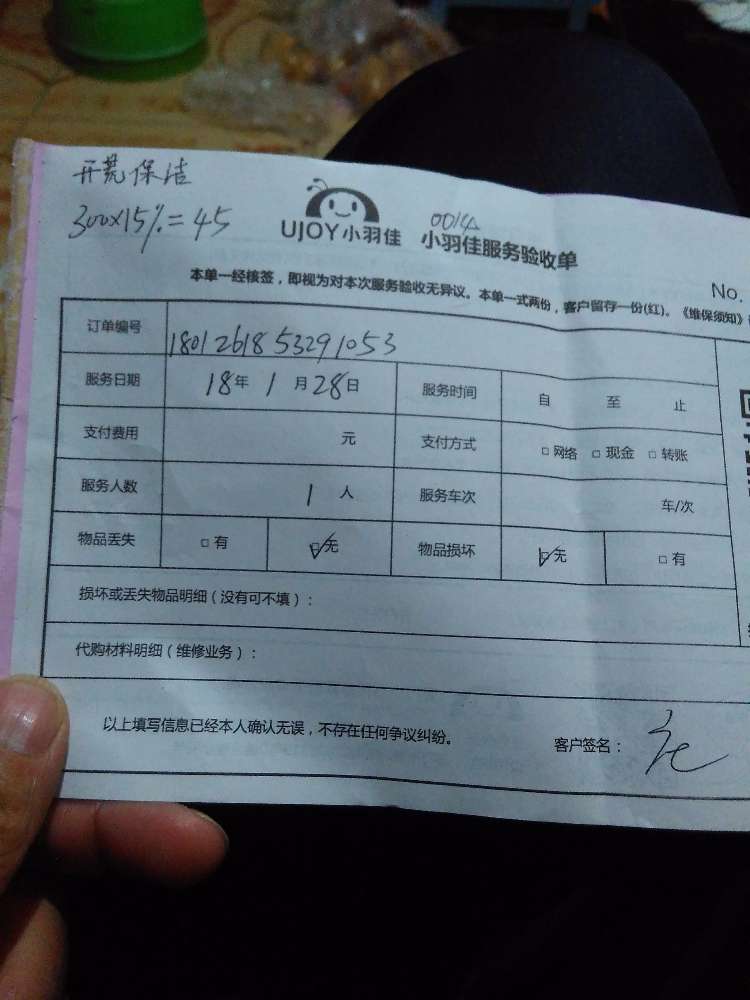 开荒保洁
300×15%=45
UJOY小羽佳
0014
小羽佳服务验收单
No.
本单一经核签，即视为对本次服务验收无异议。本单一式两份，客户留存一份(红)。《维保须知》
订单编号 1801261853291053
服务日期 18年1月28日 服务时间 自 至 止
支付费用 元 支付方式 □网络 □现金 □转账
服务人数 1人 服务车次 车/次
物品丢失 □有 ☑无 物品损坏 ☑无 □有
损坏或丢失物品明细（没有可不填）：
代购材料明细（维修业务）：
以上填写信息已经本人确认无误，不存在任何争议纠纷。 客户签名：